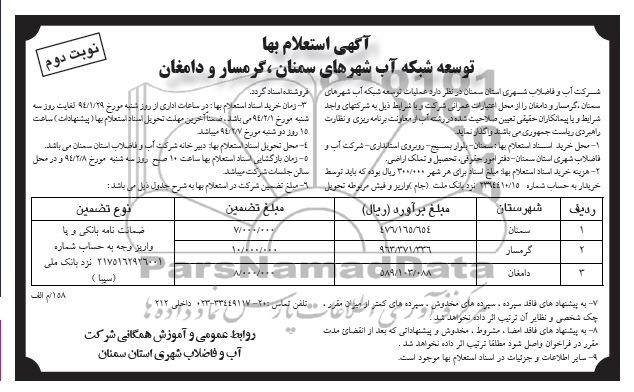 آگهی استعلام بها
توسعه شبکه آب شهرهای سمنان ،گرمسار و دامغان
نوبت دوم
شرکت آب و فاضلاب شهری استان سمنان در نظر دارد عملیات توسعه شبکه آب شهرهای
سمنان ،گرمسار و دامغان را از محل اعتبارات عمرانی شرکت و با شرایط ذیل به شرکتهای واجد
شرایط و یا پیمانکاران حقیقی تعیین صلاحیت شده در رشته آب از معاونت برنامه ریزی و نظارت
راهبردی ریاست جمهوری می باشند واگذار نماید.
۱– محل خرید اسناد استعلام بها : سمنان– بلوار بسیج– روبروی استانداری– شرکت آب و
فاضلاب شهری استان سمنان– دفتر امور حقوقی، تحصیل و تملک اراضی.
۲– هزینه خرید اسناد استعلام بها: مبلغ اسناد برای هر شهر ۳۰۰/۰۰۰ ریال بوده که باید توسط
خریدار به حساب شماره ۲۳۹۴۴۱۰/۱۵ نزد بانک ملت (جام )واریز و فیش مربوطه تحویل
فروشنده اسناد گردد.
۳– زمان خرید اسناد استعلام بها : در ساعات اداری از روز شنبه مورخ ۹۴/۱/۲۹ لغایت روز سه
شنبه مورخ ۹۴/۲/۱ می باشد ، ضمناً آخرین مهلت تحویل اسناد استعلام بها (پیشنهادات) ساعت
۱۵ روز دو شنبه مورخ ۹۴/۲/۷ میباشد.
۴– محل تحویل اسناد استعلام بها: دبیر خانه شرکت آب و فاضلاب استان سمنان می باشد.
۵– زمان بازگشایی اسناد استعلام بها ساعت ۱۰ صبح روز سه شنبه مورخ ۹۴/۲/۸ و در محل
سالن جلسات شرکت میباشد.
۶– مبلغ تضمین شرکت در استعلام بها به شرح جدول ذیل می باشد :
ردیف شهرستان مبلغ برآورد (ریال) مبلغ تضمین نوع تضمین
۱ سمنان ۴۷۶/۱۶۵/۶۵۴ ۷/۰۰۰/۰۰۰
۲ گرمسار ۹۶۳/۳۷۱/۳۳۶ ۱۰/۰۰۰/۰۰۰
۳ دامغان ۵۸۹/۱۰۳/۰۸۸ ۸/۰۰۰/۰۰۰
ضمانت نامه بانکی و یا
واریز وجه به حساب شماره
۲۱۷۵۱۶۲۹۲۶۰۰۱ نزد بانک ملی
(سیبا )
۱۵۸/م الف
۷– به پیشنهاد های فاقد سپرده ، سپرده های مخدوش ، سپرده های کمتر از میزان مقرر ،
چک شخصی و نظایر آن ترتیب اثر داده نخواهد شد.
۸– به پیشنهاد های فاقد امضا ، مشروط ، مخدوش و پیشنهاداتی که بعد از انقضای مدت
مقرر در فراخوان واصل شود مطلقا ترتیب اثر داده نخواهد شد .
۹– سایر اطلاعات و جزئیات در اسناد استعلام بها موجود است.
تلفن تماس :۲۰– ۳۳۴۴۹۱۱۷–۰۲۳ داخلی ۲۱۲
روابط عمومی و آموزش همگانی شرکت
آب و فاضلاب شهری استان سمنان
ParsNamadData